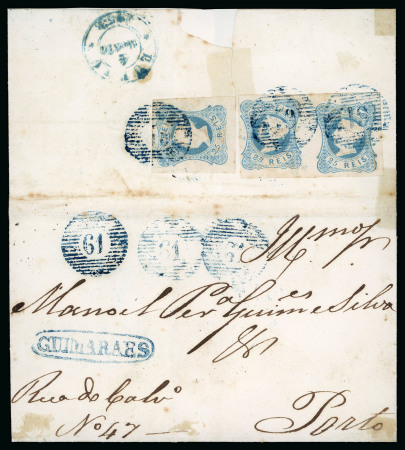 4
25 REIS
25 REIS
25 REIS
61
61
61
Manoel Per.ª Guim.es e Silva
GUIMARAES
&
Rua do Calv.º
Nº 47
Porto